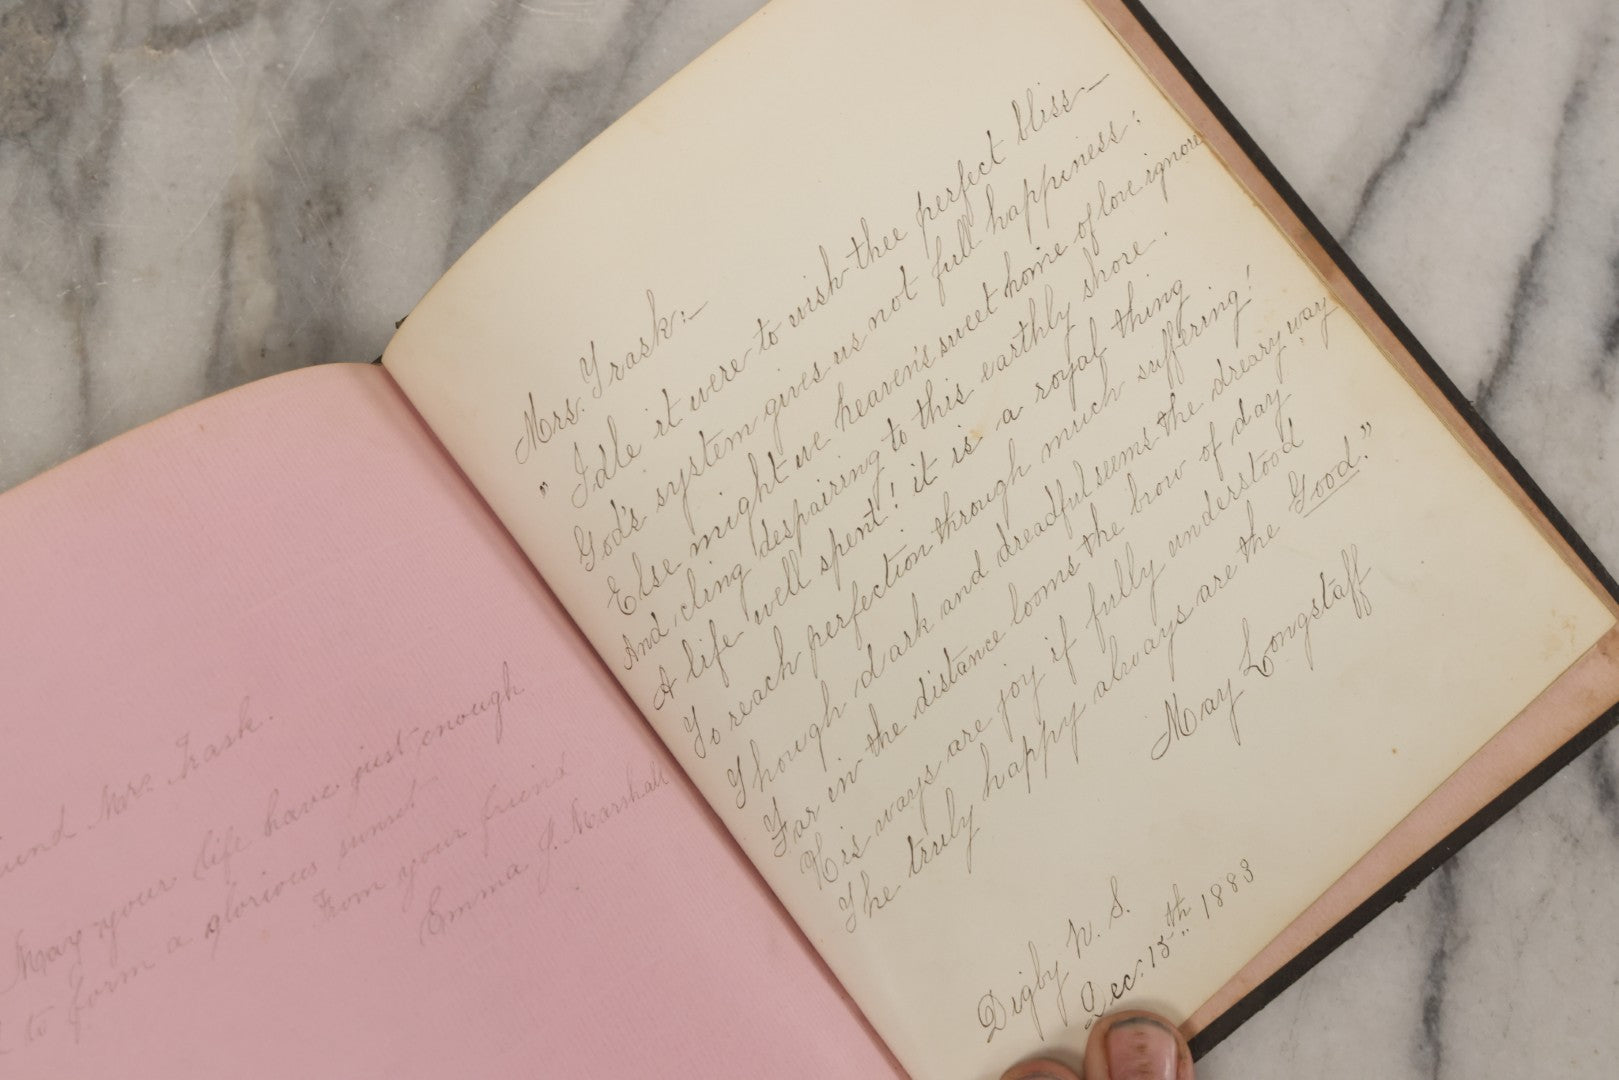 Friend Mrs. Trask.
May your life have just enough
to form a glorious sunset
From your friend
Emma J. Marshall
Mrs. Trask:—
" Idle it were to wish thee perfect bliss—
God's system gives us not full happiness:
Else might we heaven's sweet home of love ignore
And, cling despairing to this earthly shore.
A life well spent! it is a royal thing
To reach perfection through much suffering!
Though dark and dreadful seems the dreary way
Far in the distance looms the brow of day
His ways are joy if fully understood
The truly happy always are the Good."
May Longstaff
Digby N. S.
Dec. 15th 1883